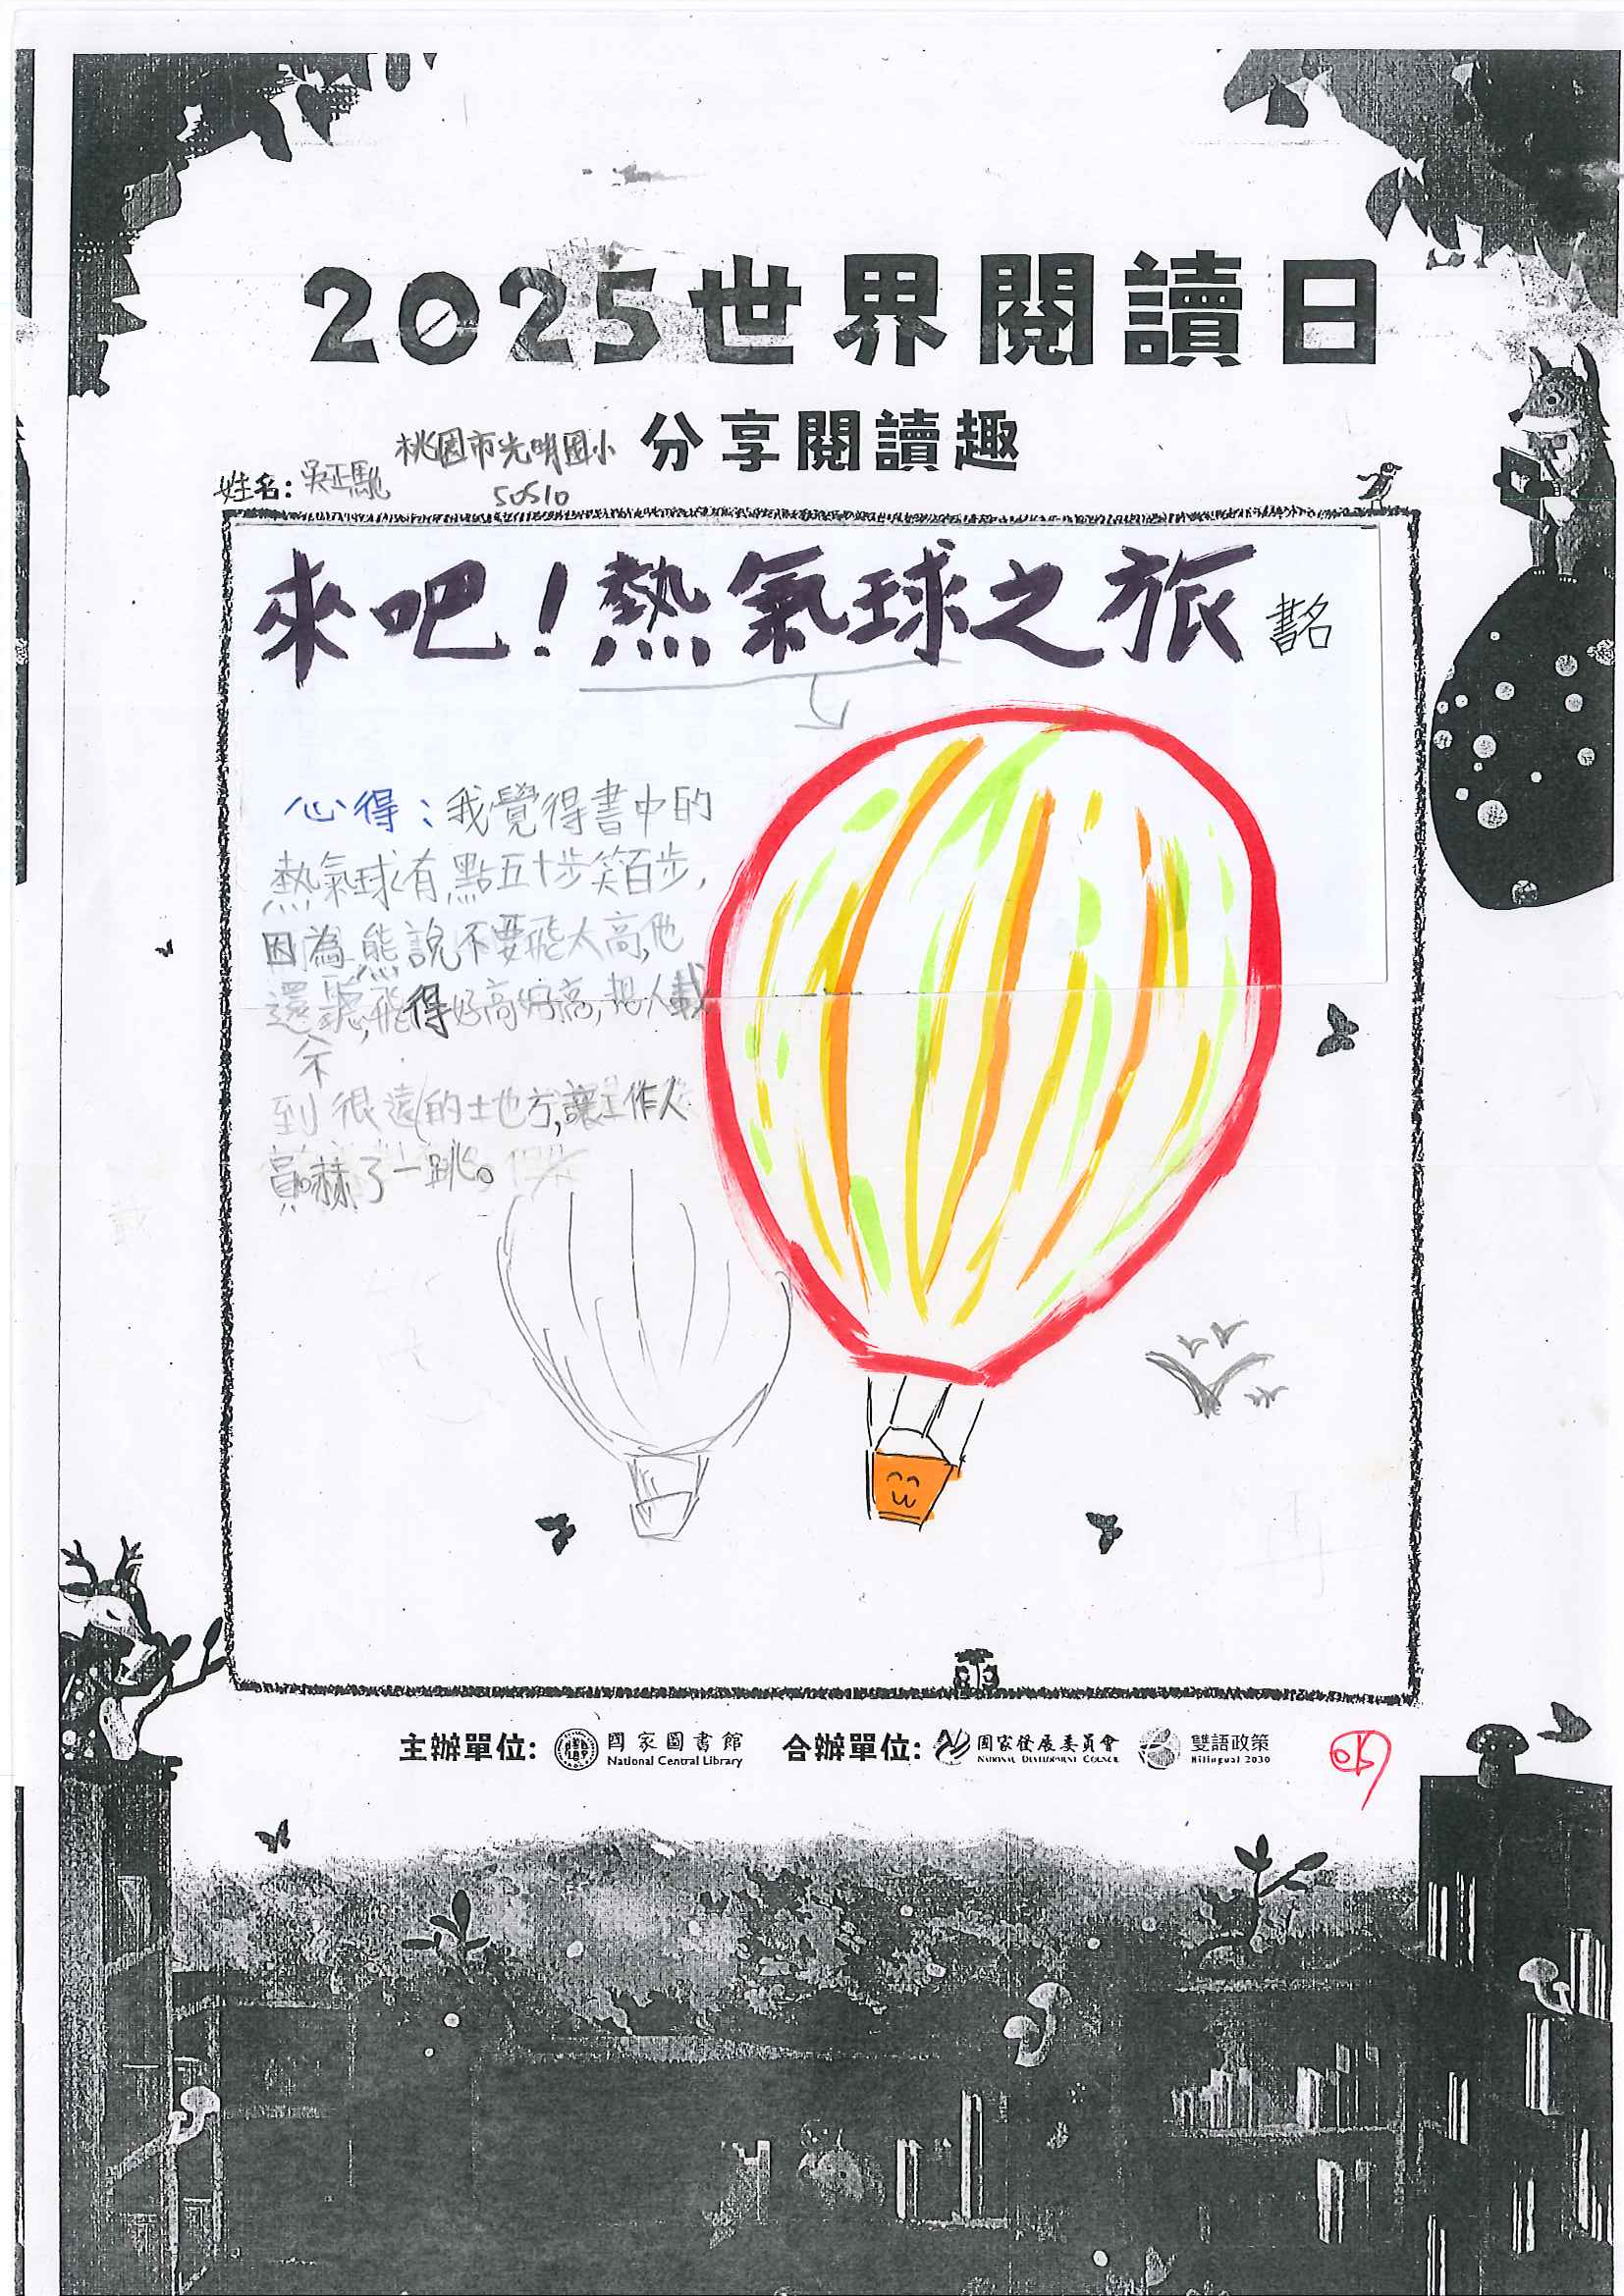 2025世界閱讀日
分享閱讀趣
桃園市光明國小
姓名：吳正馳
50510
來吧！熱氣球之旅 書名
心得：我覺得書中的
熱氣球有點五十步笑百步，
因為熊說不要飛太高，他
還不聽，飛得好高好高，把人載
到很遠的地方，讓工作人
員嚇了一跳。
主辦單位： 國家圖書館 合辦單位： 國家發展委員會 雙語政策
National Central Library NATIONAL DEVELOPMENT COUNCIL Bilingual 2030